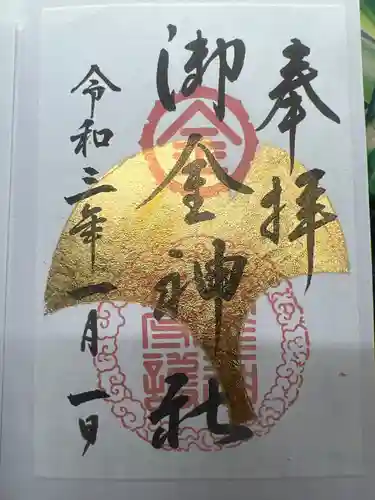 奉拝
御金神社
令和三年一月一日